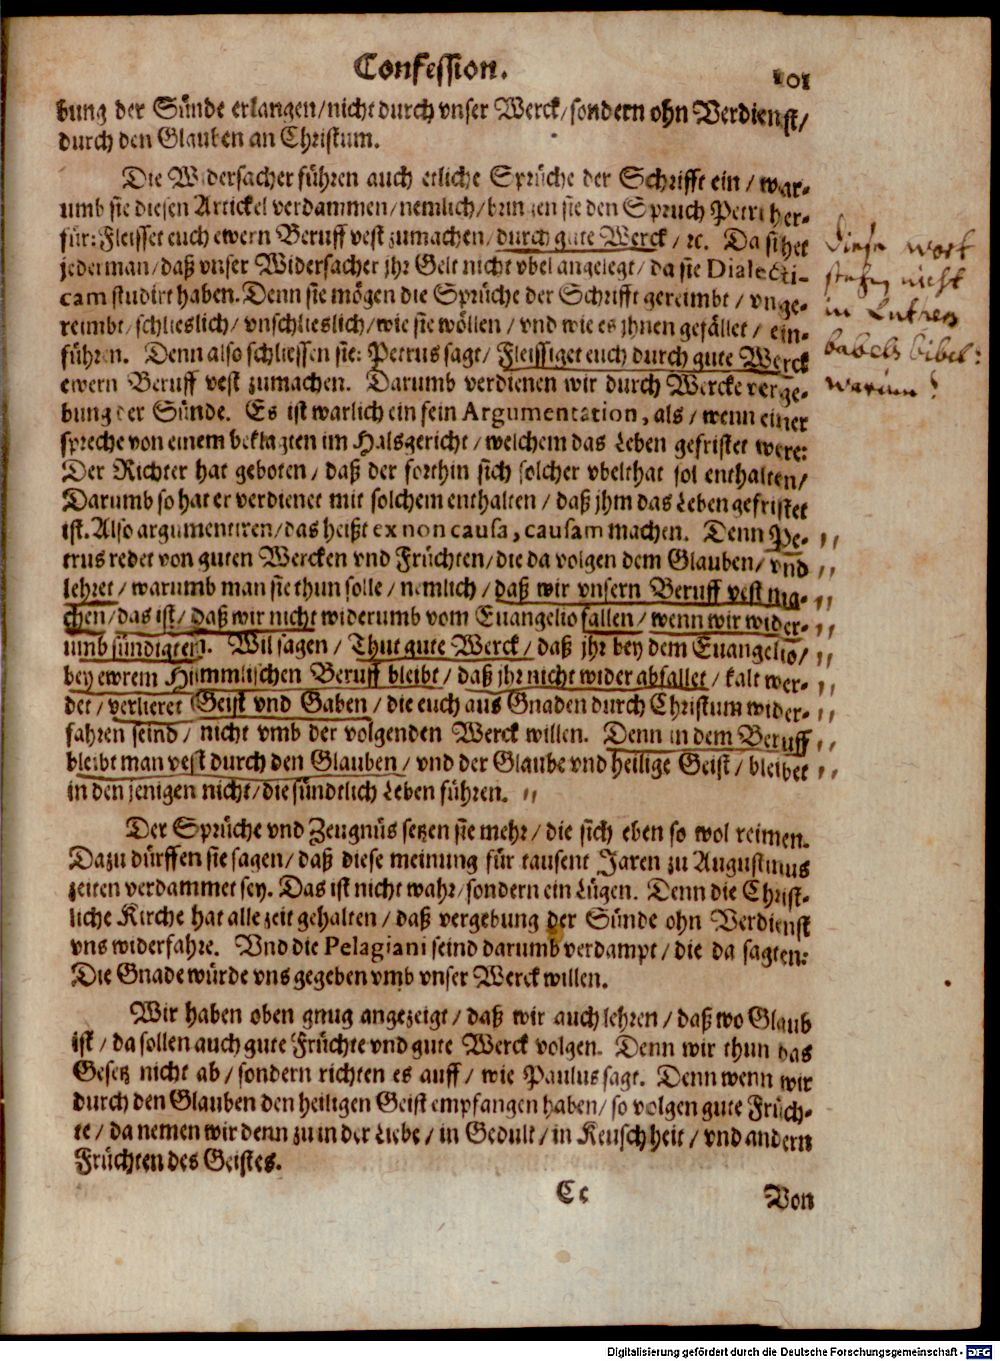 Confession. 101
bung der Sünde erlangen/nicht durch vnser Werck/sondern ohn Verdienst/
durch den Glauben an Christum.
Die Widersacher führen auch etliche Sprüche der Schrifft ein/war-
umb sie diesen Artickel verdammen/nemlich/bringen sie den Spruch Petri her-
für: Fleisset euch ewern Beruff vest zumachen/durch gute Werck/ꝛc. Da sihet
jederman/daß vnser Widersacher jhr Gelt nicht vbel angelegt/da sie Dialecti-
cam studirt haben. Denn sie mögen die Sprüche der Schrifft gereimbt/vnge-
reimbt/schlieslich/vnschlieslich/wie sie wöllen/vnd wie es jhnen gefället/ein-
führen. Denn also schliessen sie: Petrus sagt/Fleissiget euch durch gute Werck
ewern Beruff vest zumachen. Darumb verdienen wir durch Wercke verge-
bung der Sünde. Es ist warlich ein fein Argumentation, als/wenn einer
spreche von einem beklagten im Halsgericht/welchem das Leben gefristet were:
Der Richter hat geboten/daß der forthin sich solcher vbelthat sol enthalten/
Darumb so hat er verdienet mit solchem enthalten/daß jhm das Leben gefristet
ist. Also argumentiren/das heißt ex non causa, causam machen. Denn Pe-
trus redet von guten Wercken vnd Früchten/die da volgen dem Glauben/vnd
lehret/warumb man sie thun solle/nemlich/daß wir vnsern Beruff vest ma-
chen/das ist/daß wir nicht widerumb vom Euangelio fallen/wenn wir wider-
umb sündigten. Wil sagen/Thut gute Werck/daß jhr bey dem Euangelio/
bey ewrem Himmlischen Beruff bleibt/daß jhr nicht wider abfallet/kalt wer-
det/verlieret Geist vnd Gaben/die euch aus Gnaden durch Christum wider-
fahren seind/nicht vmb der volgenden Werck willen. Denn in dem Beruff
bleibt man vest durch den Glauben/vnd der Glaube vnd heilige Geist/bleibet
in den jenigen nicht/die sündtlich Leben führen.
Der Sprüche vnd Zeugnüs setzen sie mehr/die sich eben so wol reimen.
Dazu dürffen sie sagen/daß diese meinung für tausent Jaren zu Augustinus
zeiten verdammet sey. Das ist nicht wahr/sondern ein Lügen. Denn die Christ-
liche Kirche hat allezeit gehalten/daß vergebung der Sünde ohn Verdienst
vns widerfahre. Vnd die Pelagiani seind darumb verdampt/die da sagten:
Die Gnade würde vns gegeben vmb vnser Werck willen.
Wir haben oben gnug angezeigt/daß wir auch lehren/daß wo Glaub
ist/da sollen auch gute Früchte vnd gute Werck volgen. Denn wir thun das
Gesetz nicht ab/sondern richten es auff/wie Paulus sagt. Denn wenn wir
durch den Glauben den heiligen Geist empfangen haben/so volgen gute Früch-
te/da nemen wir denn zu in der Liebe/in Gedult/in Keuschheit/vnd andern
Früchten des Geistes.
Cc Von
Diese wort
stehen nicht
in Luthers
babels bibel:
warum?
Digitalisierung gefördert durch die Deutsche Forschungsgemeinschaft - DFG